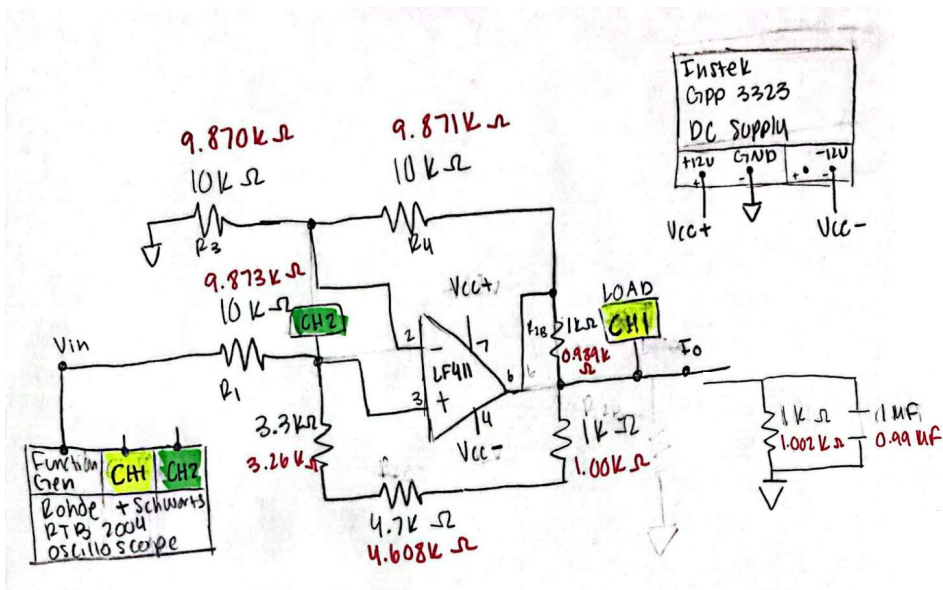 Instek
GPP 3323
DC Supply
+12V GND -12V
+ - +• -
Vcc+
Vcc-
9.870K Ω
10K Ω
R3
9.871K Ω
10K Ω
R4
9.873K Ω
10K Ω
CH2
R1
Vin
Vcc+
2
-
7
LF411
6
3
+
4
Vcc-
R2B
1KΩ
0.989K
Ω
LOAD
CH1
Io
3.3KΩ
3.26K
4.7K Ω
4.608K Ω
1K Ω
1.00KΩ
1K Ω
1.002KΩ
0.99 UF
Function
Gen
CH1
CH2
Rohde + Schwarts
RTB 2004
oscilloscope